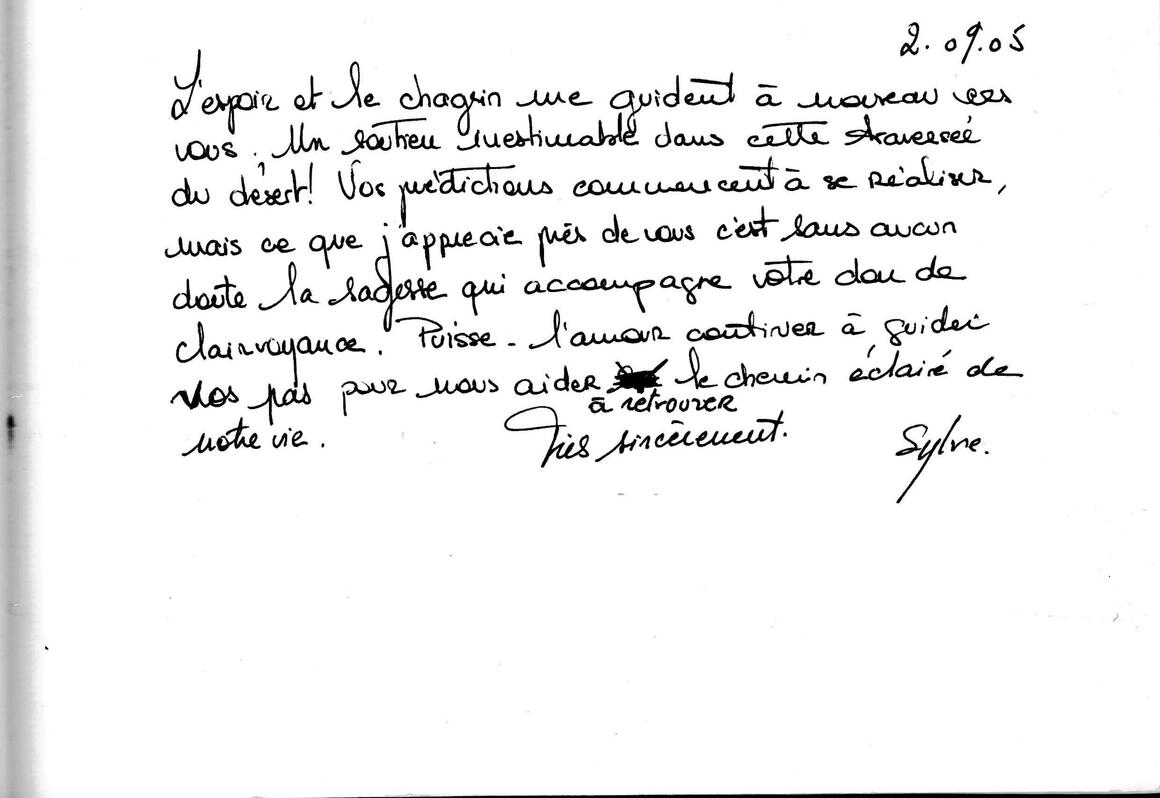 2.09.05
L'espoir et le chagrin me guident à nouveau vers
vous. Un soutien inestimable dans cette traversée
du désert! Vos prédictions commencent à se réaliser,
mais ce que j'apprécie près de vous c'est sans aucun
doute la sagesse qui accompagne votre don de
clairvoyance. Puisse - l'amour continuer à guider
vos pas pour nous aider le chemin éclairé de
à retrouver
notre vie. Très sincèrement. Sylvie.